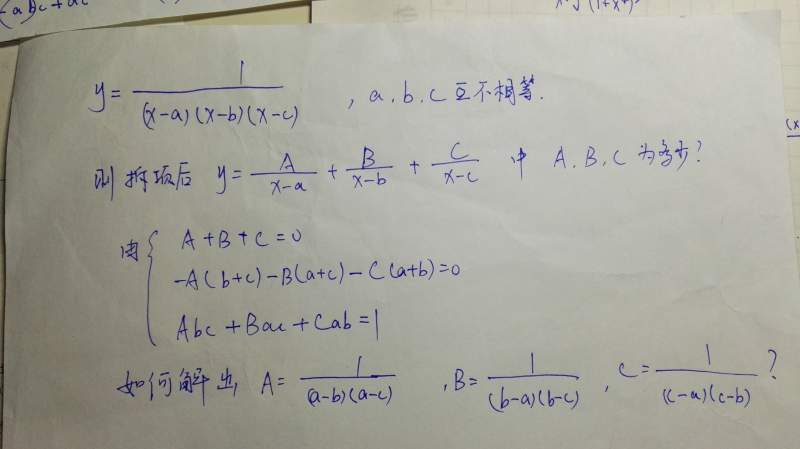 -abc+ac
y = 1/((x-a)(x-b)(x-c)) , a.b.c 互不相等.
则拆项后 y = A/(x-a) + B/(x-b) + C/(x-c) 中 A.B.C 为多少?
由 { A+B+C=0
-A(b+c)-B(a+c)-C(a+b)=0
Abc+Bac+Cab=1
如何解出 A= 1/((a-b)(a-c)) , B= 1/((b-a)(b-c)) , C= 1/((c-a)(c-b)) ?